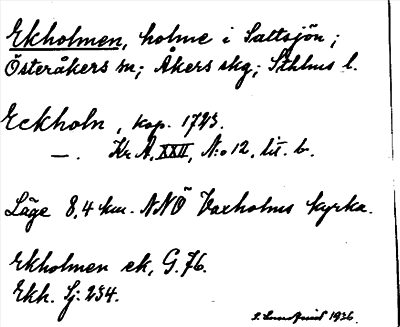 Ekholmen, holme i Saltsjön;
Österåkers sn; Åkers skg; Sthlms l.
Eckholn, kop. 1723.
—. Kr A, XXII, N:o 12, lit. b.
Läge 8,4 km. NNÖ Vaxholms kyrka.
Ekholmen ek, G. 76.
Ekh. Sj: 234.
1936.